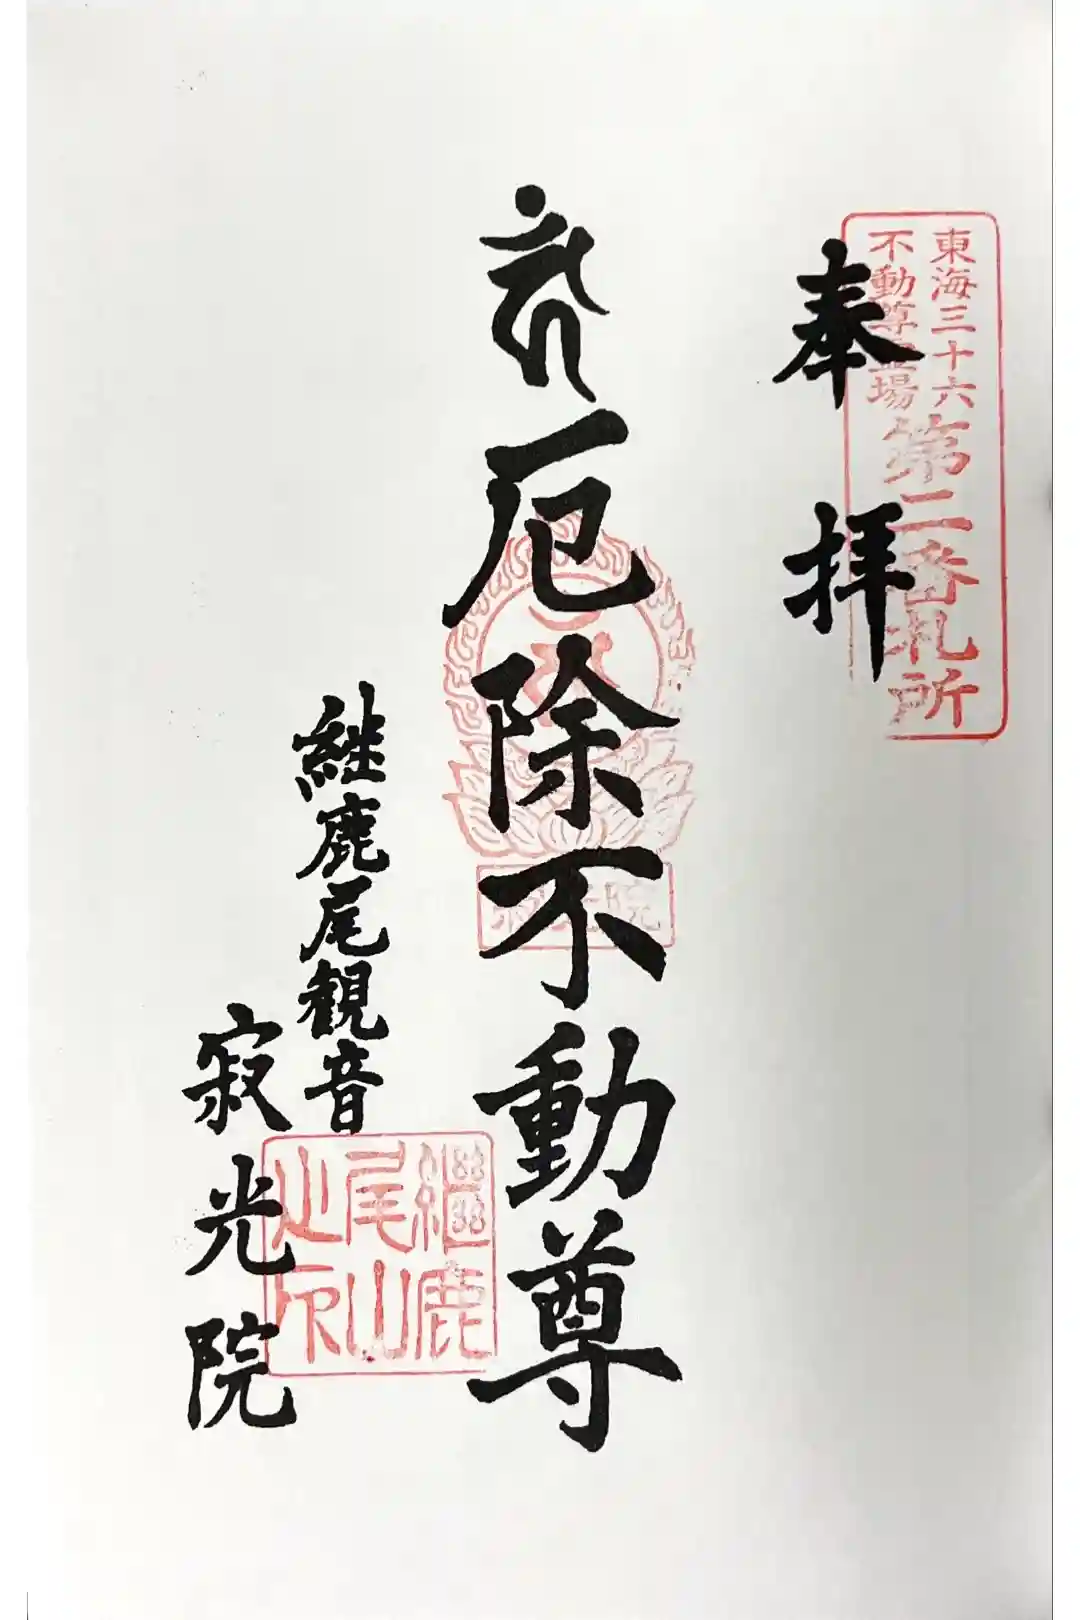 東海三十六
不動尊霊場
第二番札所
奉拝
厄除不動尊
継鹿尾観音
寂光院
継鹿
尾山
之印